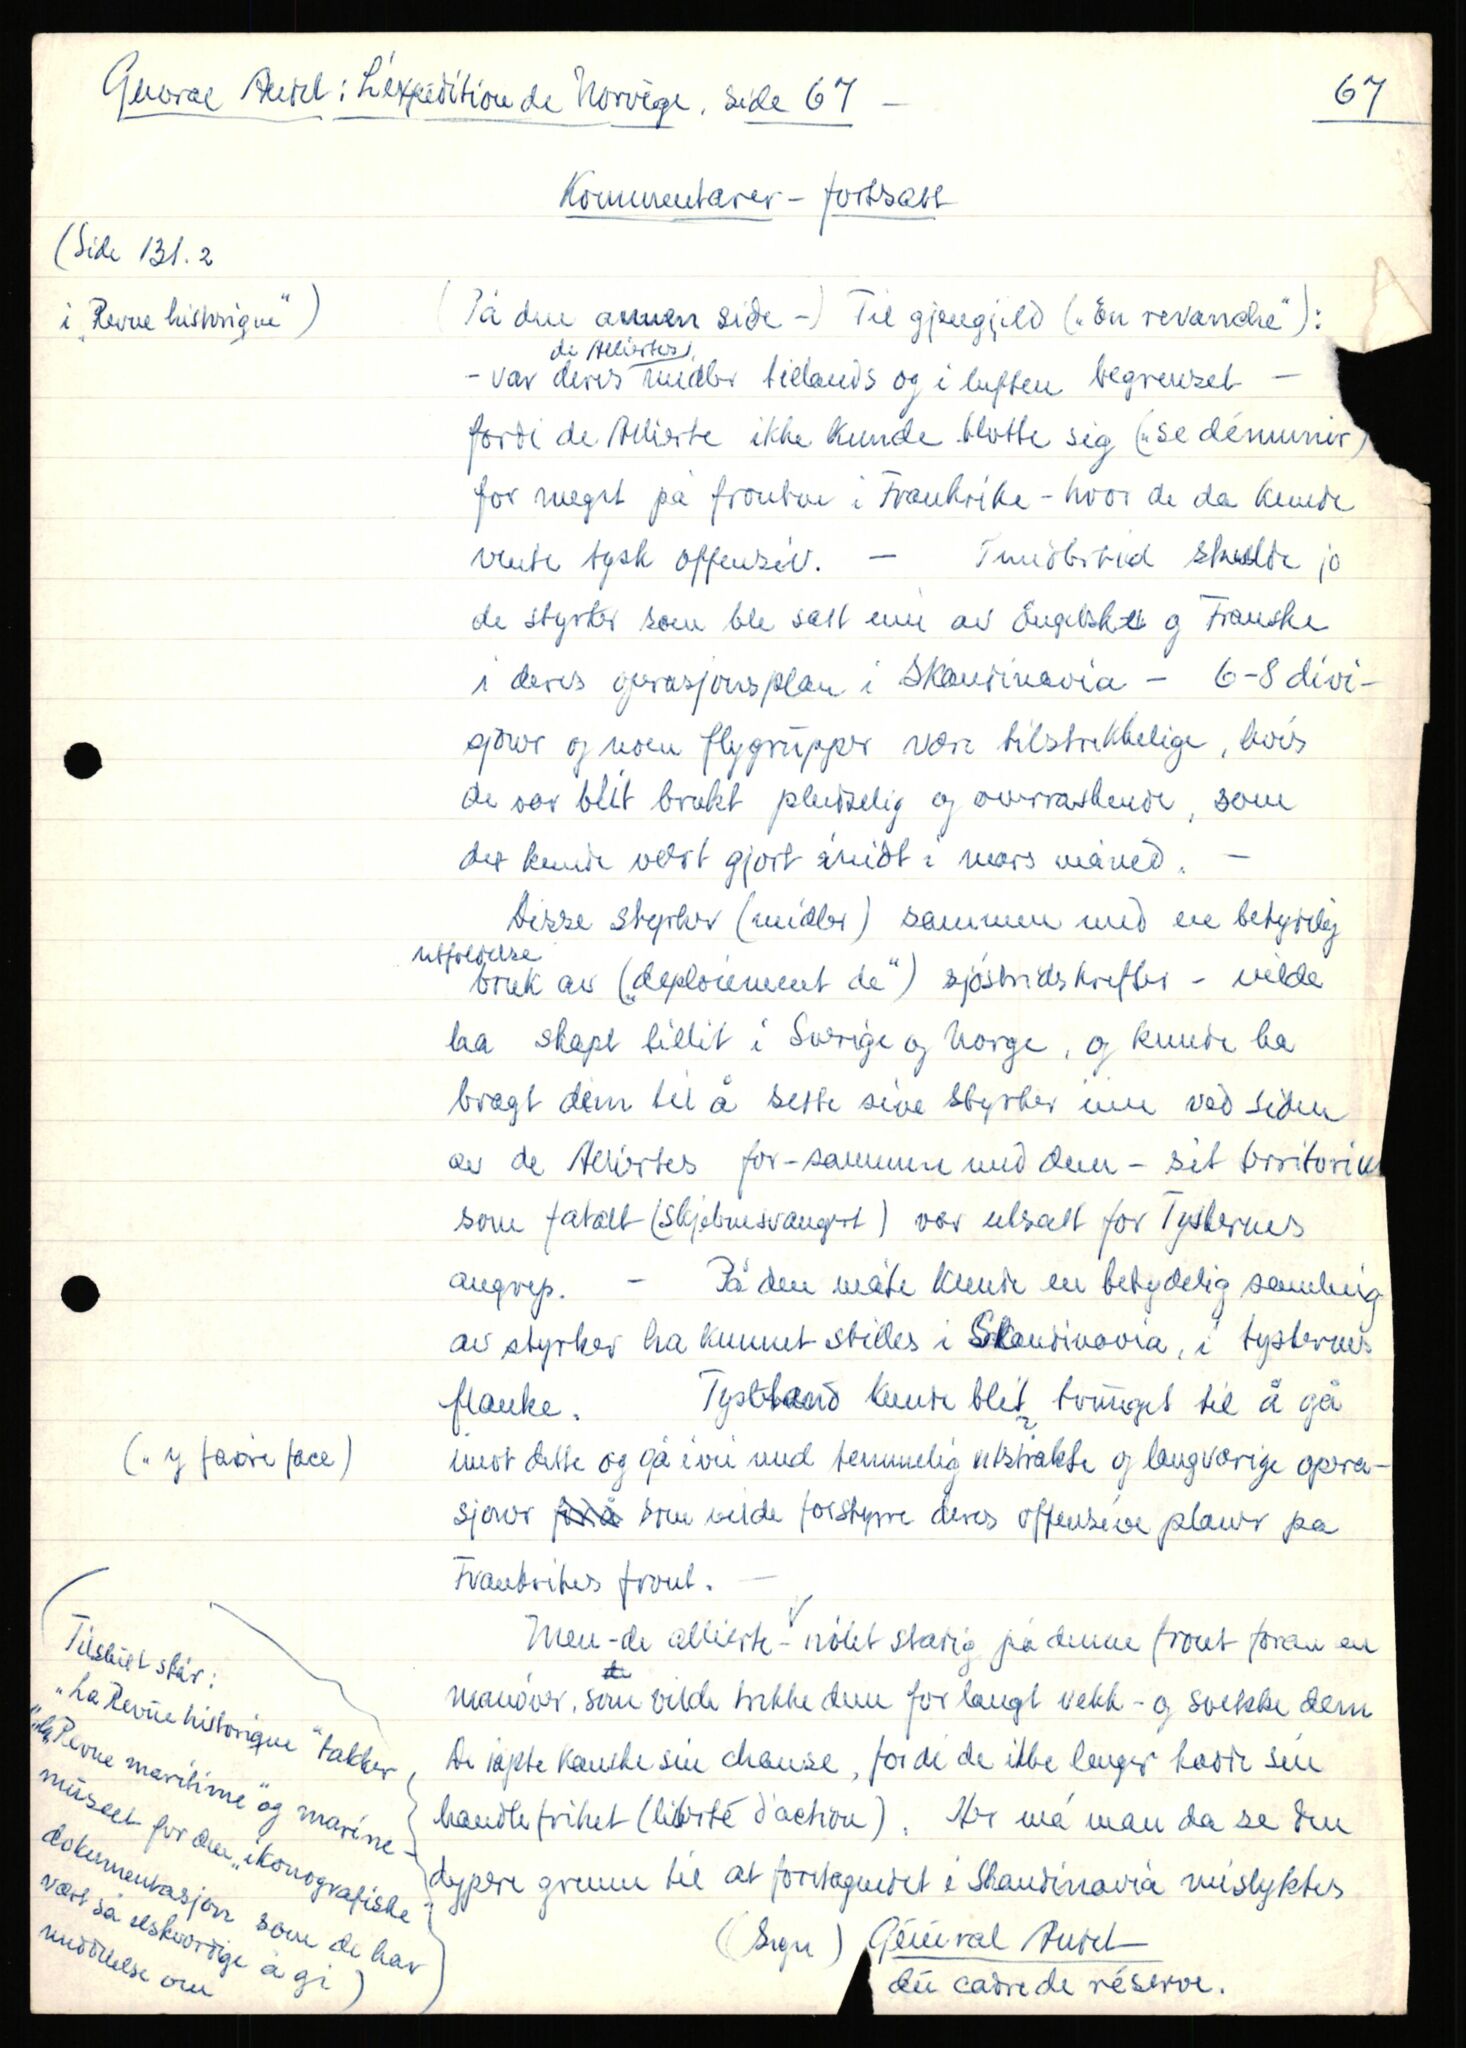 General Audet: L'expédition de Norvège. side 67 —
67
Kommentarer - fortsatt
(Side 131.2
i „Revue historique")
(På den annen side -) Til gjengjeld („En revanche"):
de Alliertes
- var deres midler tillands og i luften begrenset —
fordi de Allierte ikke kunde blotte sig („se démunir)
for meget på fronten i Frankrike - hvor de da kunde
vente tysk offensiv. — Imidlertid skulde jo
de styrker som ble satt inn av Engelske og Franske
i deres operasjonsplan i Skandinavia - 6-8 divi-
sjoner og noen flygrupper være tilstrekkelige, hvis
de var blit brukt pludselig og overraskende, som
det kunde vært gjort i midt i mars måned. —
Disse styrker (midler) sammen med en betydelig
utfoldelse
bruk av („deploiement de") sjøstridskrefter - vilde
ha skapt tillit i Sverige og Norge, og kunde ha
bragt dem til å sette sine styrker inn ved siden
av de Alliertes for - sammen med dem - sit territorium
som fatalt (skjebnesvangert) var utsatt for Tyskernes
angrep. — På den måte kunde en betydelig samling
av styrker ha kunnet stilles i Skandinavia, i tyskernes
flanke. Tyskland kunde blit tvunget til å gå
(„y faire face)
imot dette og gå inn med temmelig utstrakte og langvarige opera-
sjoner for å som vilde forstyrre deres offensive planer på
Frankrikes front. —
Men - de allierte - nølet stadig på denne front foran en
manøver, som de vilde trekke dem for langt vekk - og svekke dem
De tapte kanske sin chanse, fordi de ikke lenger hadde sin
handlefrihet (liberté d'action). Her må man da se den
dypere grunn til at foretagendet i Skandinavia mislyktes
(Sign) Général Audet
du cadre de réserve.
(Tilslutt står:
„La Revue historique" takker
„La Revue maritime" og marine-
museet for den „ikonografiske"
dokumentasjon som de har
vært så elskverdige å gi
meddelelse om)